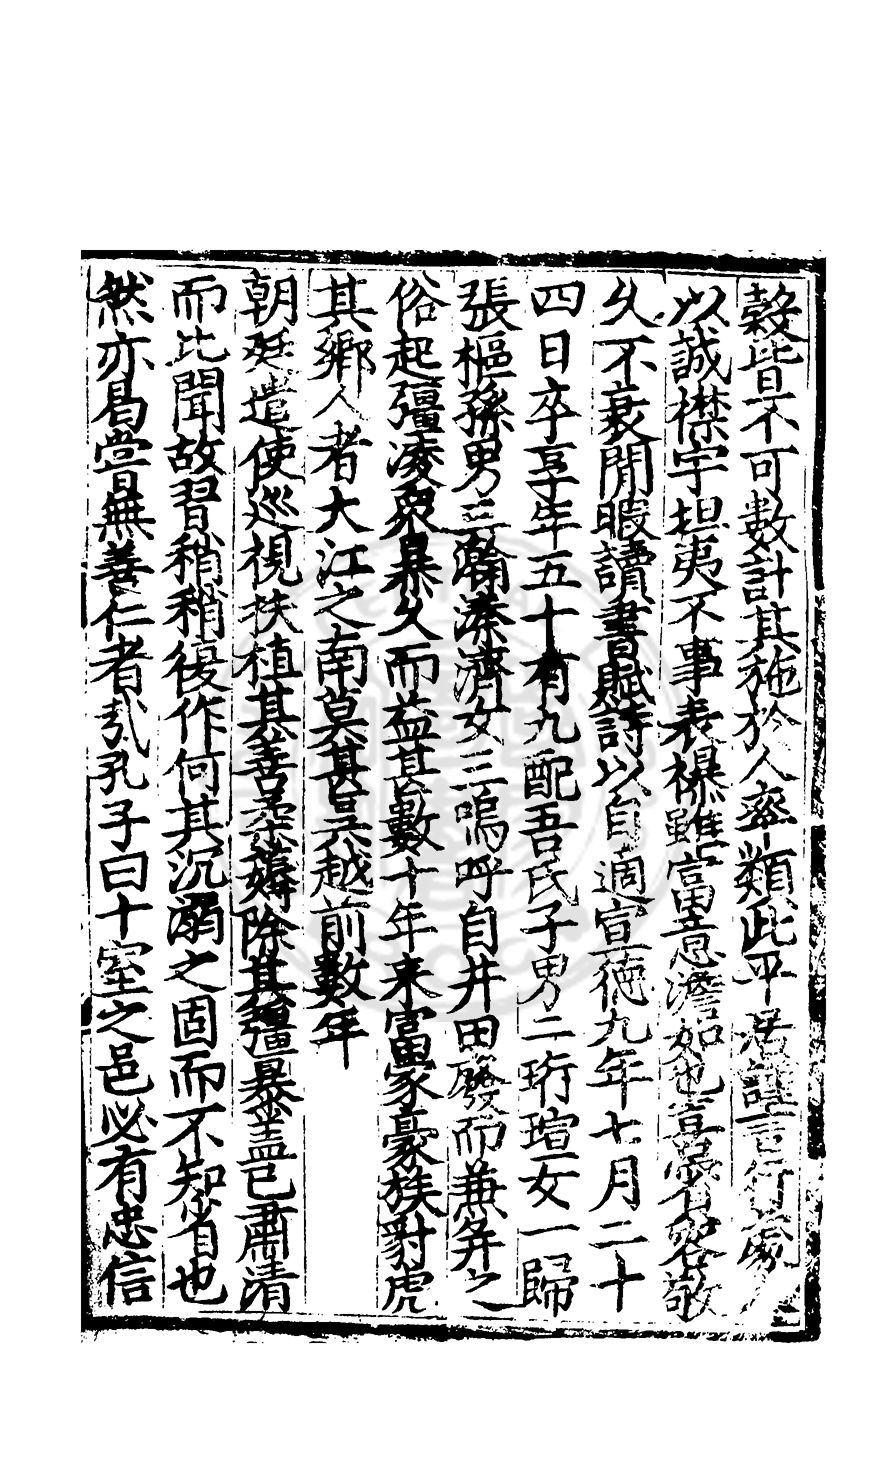 穀皆不可數計其施於人率類此平居謹言行處人
以誠襟宇坦夷不事表襮雖富意澹如也言貌者欽敬
久不衰閒暇讀書賦詩以自適宣德九年七月二十
四日卒享年五十有九配吾氏子男二珩瑄女一歸
張樞孫男三瀚溱濟女三嗚呼自井田廢而兼并之
俗起彊凌衆暴久而益甚數十年来富家豪族豺虎
其鄉人者大江之南莫甚吴越前數年
朝廷遣使巡視扶植其善柔薅除其彊暴盖已肅清
而比聞故習稍稍復作何其沉溺之固而不知省也
然亦曷嘗無善仁者㢤孔子曰十室之邑必有忠信